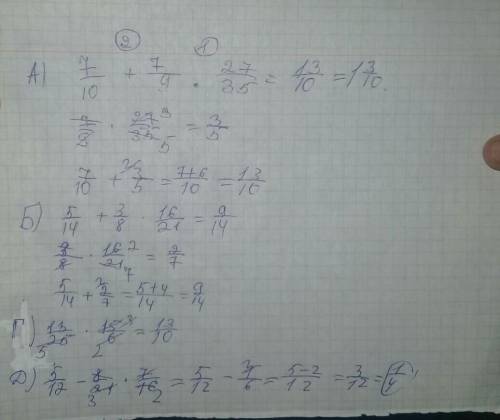 ② ①
А) 7/10 + 7/9 · 27/35 = 13/10 = 1 3/10.
7/9 · 27 3/35 5 = 3/5
7/10 + 2\3/5 = 7+6/10 = 13/10
Б) 5/14 + 3/8 · 16/21 = 9/14
3/8 · 16 2/21 7 = 2/7
5/14 + 2\2/7 = 5+4/14 = 9/14
Г) 13/25 5 · 15 3/6 2 = 13/10
Д) 5/12 - 8/21 3 · 7/16 2 = 5/12 - 1/6 = 5-2/12 = 3/12 = 1/4